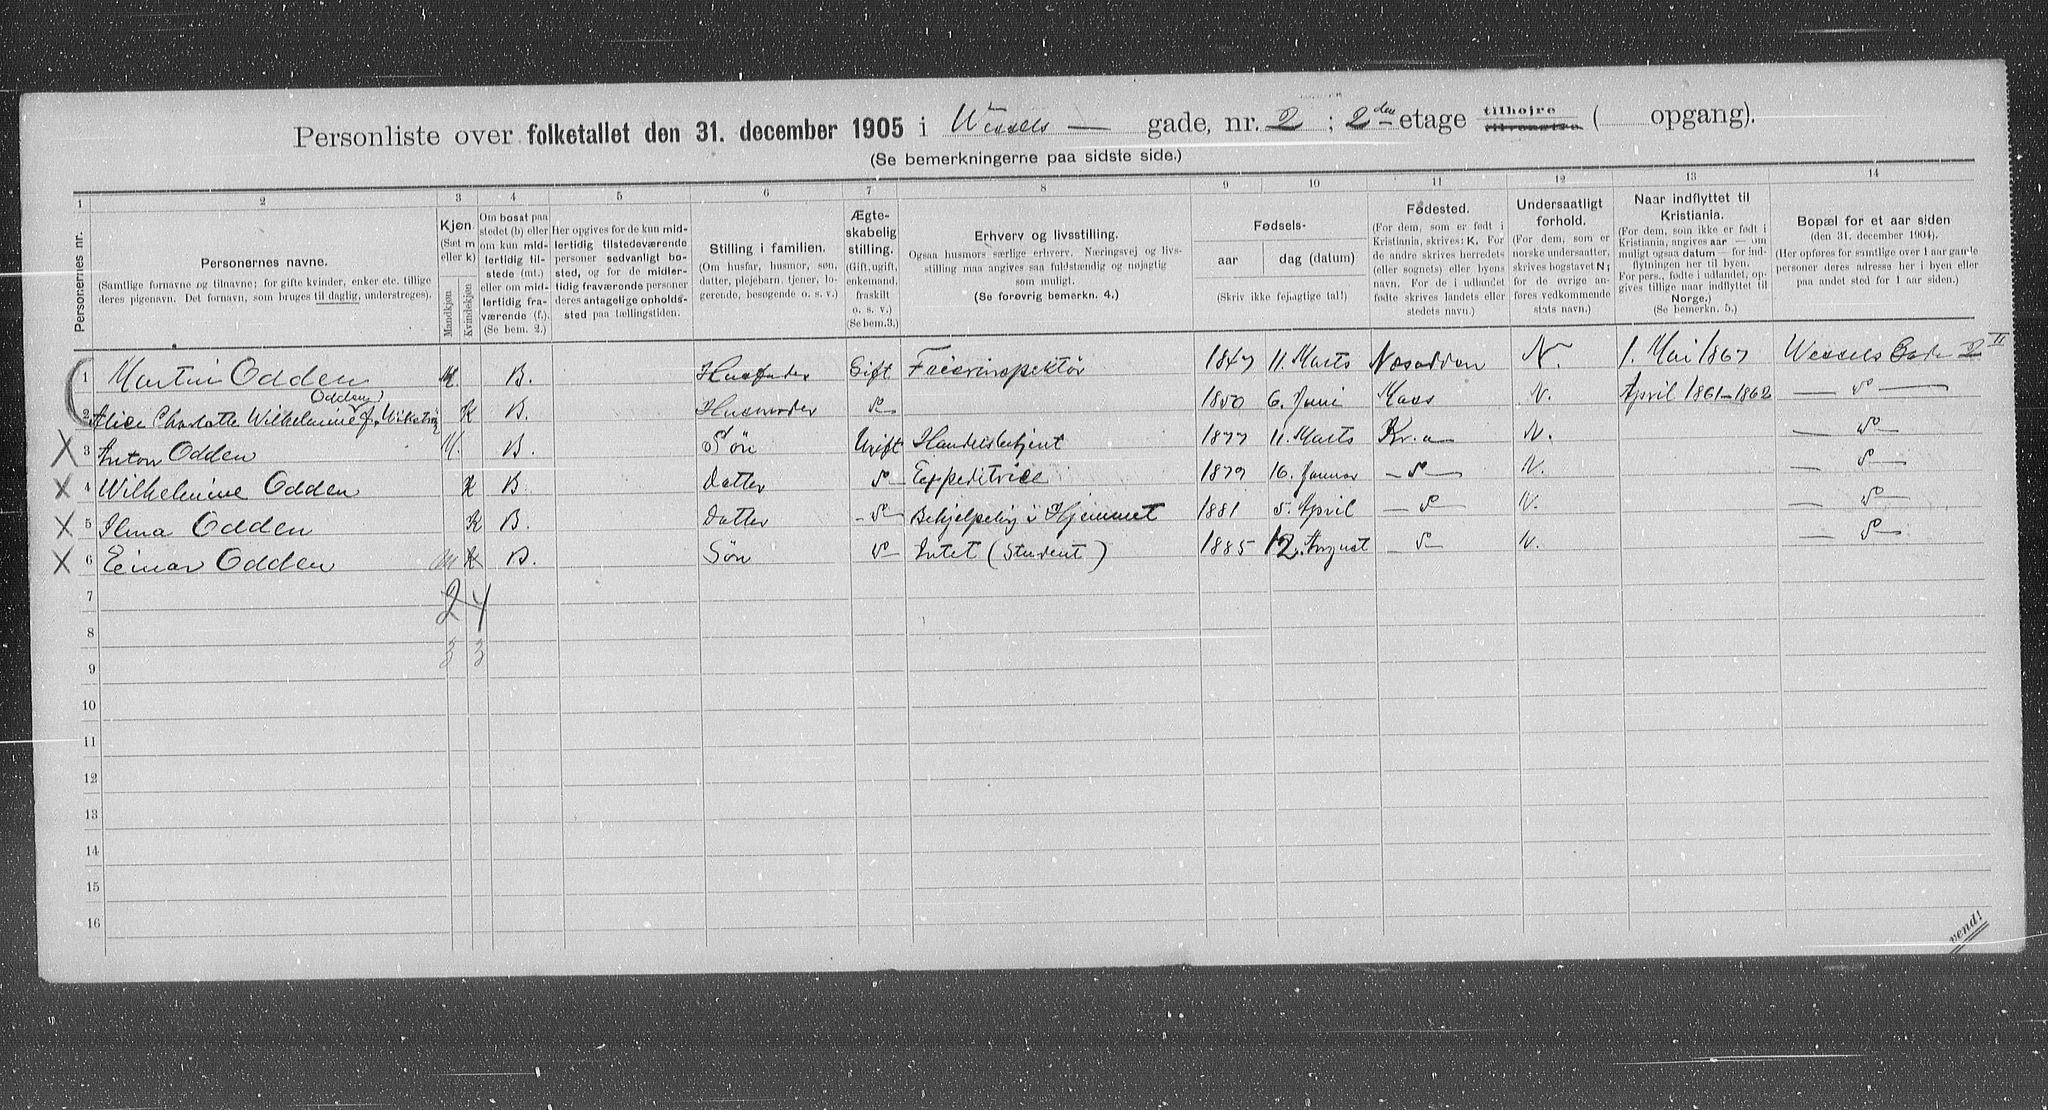 Personliste over folketallet den 31. december 1905 i Wessels — gade, nr. 2 ; 2den etage tilhøjre tilvenstre ( opgang).
(Se bemerkningerne paa sidste side.)
1 2 3 4 5 6 7 8 9 10 11 12 13 14
Personernes nr.
Personernes navne.
(Samtlige fornavne og tilnavne; for gifte kvinder, enker etc. tillige
deres pigenavn. Det fornavn, som bruges til daglig, understreges).
Kjøn.
(Sæt m
eller k)
Mandkjøn
Kvindekjøn
Om bosat paa
stedet (b) eller
om kun mid-
lertidig til-
stede (mt.)
eller om mid-
lertidig fra-
værende (f.).
(Se bem. 2.)
Her opgives for de kun mid-
lertidig tilstedeværende
personer sedvanlig bo-
sted, og for de midler-
tidig fraværende personer
deres antagelige opholds-
sted paa tællingstiden.
Stilling i familien.
(Om husfar, husmor, søn,
datter, plejebarn, tjener, lo-
gerende, besøgende o. s. v.)
Ægte-
skabelig
stilling.
(Gift, ugift,
enkemand,
fraskilt
o. s. v.)
(Se bem.3.)
Erhverv og livsstilling.
Ogsaa husmors særlige erhverv. Næringsvej og livs-
stilling maa angives saa fuldstændig og nøjagtig
som muligt.
(Se forøvrig bemerkn. 4.)
Fødsels-
aar
dag (datum)
(Skriv ikke fejagtige tal!)
Fødested.
(For dem, som er født i
Kristiania, skrives: K. For
de andre skrives herredets
(eller sognets) eller byens
navn. For de i udlandet
fødte skrives landets eller
stedets navn.)
Undersaatligt
forhold.
(For dem, som er
norske undersaatter,
skrives bogstavet N;
for de øvrige an-
føres vedkommende
stats navn.)
Naar indflyttet til
Kristiania.
(For dem, som ikke er født i
Kristiania, angives aar — om
muligt ogsaa datum — for ind-
flytningen her til byen.
For pers., fødte i udlandet, op-
gives tillige naar indflyttet til
Norge.)
(Se bemerkn. 5.)
Bopæl for et aar siden
(den 31. december 1904).
(Her opføres for samtlige over 1 aar gamle
personer deres adresse her i byen eller
paa andet sted for 1 aar siden.)
1 Martin Odden M B. Husfader Gift Feierinspektør 1847 11. Marts Nesodden N. 1. Mai 1867 Wessels Gade 2 II
Odden
2 Alice Charlotte Wilhelmine f. K B. Husmoder do 1850 6. Juni Moss N. April 1861–1862 — do —
X 3 Anton Odden M. B. Søn Ugift Handelsbetjent 1877 11. Marts Kr.a N. — do —
X 4 Wilhelmine Odden K B. Datter do Expeditrice 1879 16. Januar — do — N. — do —
X 5 Ilma Odden K B. Datter — do — Behjelpelig i Hjemmet 1881 5. April — do — N. — do —
X 6 Einar Odden m K B. Søn do Intet (Student) 1885 12. August — do — N. — do —
7 2 4
8
9 3 3
10
11
12
13
14
15
16
vend!